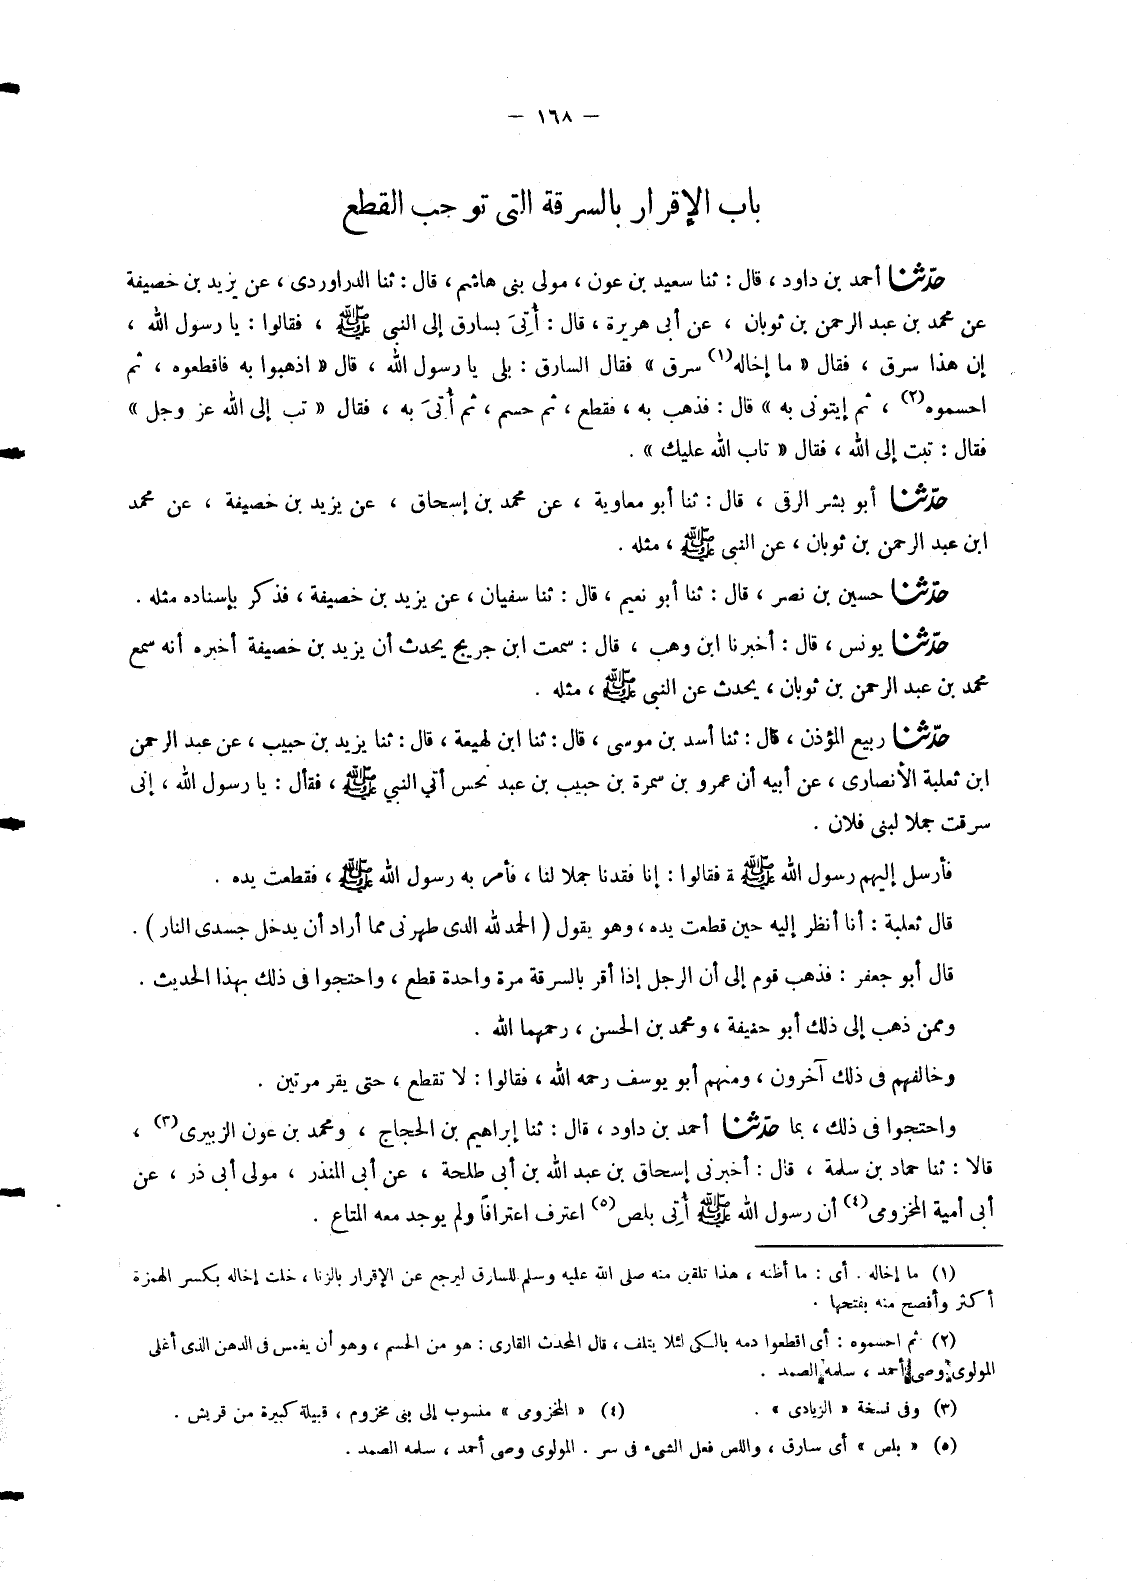 — ١٦٨ —
باب الإقرار بالسرقة التى توجب القطع
حدّثنا أحمد بن داود ، قال : ثنا سعيد بن عون ، مولى بنى هاشم ، قال : ثنا الدراوردى ، عن يزيد بن خصيفة
عن محمد بن عبد الرحمن بن ثوبان ، عن أبى هريرة ، قال : أُتِىَ بسارق إلى النبى ﷺ ، فقالوا : يا رسول الله ،
إن هذا سرق ، فقال « ما إخاله(١) سرق » فقال السارق : بلى يا رسول الله ، قال « اذهبوا به فاقطعوه ، ثم
احسموه(٢) ، ثم إيتونى به » قال : فذهب به ، فقطع ، ثم حسم ، ثم أُتىَ به ، فقال « تب إلى الله عز وجل »
فقال : تبت إلى الله ، فقال « تاب الله عليك » .
حدّثنا أبو بشر الرقى ، قال : ثنا أبو معاوية ، عن محمد بن إسحاق ، عن يزيد بن خصيفة ، عن محمد
ابن عبد الرحمن بن ثوبان ، عن النبى ﷺ ، مثله .
حدّثنا حسين بن نصر ، قال : ثنا أبو نعيم ، قال : ثنا سفيان ، عن يزيد بن خصيفة ، فذكر بإسناده مثله .
حدّثنا يونس ، قال : أخبرنا ابن وهب ، قال : سمعت ابن جريج يحدث أن يزيد بن خصيفة أخبره أنه سمع
محمد بن عبد الرحمن بن ثوبان ، يحدث عن النبى ﷺ ، مثله .
حدّثنا ربيع المؤذن ، قال : ثنا أسد بن موسى ، قال : ثنا ابن لهيعة ، قال : ثنا يزيد بن حبيب ، عن عبد الرحمن
ابن ثعلبة الأنصارى ، عن أبيه أن عمرو بن سمرة بن حبيب بن عبد نحس أتي النبي ﷺ ، فقأل : يا رسول الله ، إنى
سرقت جملا لبنى فلان .
فأرسل إليهم رسول الله ﷺ ة فقالوا : إنا فقدنا جملا لنا ، فأمر به رسول الله ﷺ ، فقطعت يده .
قال ثعلبة : أنا أنظر إليه حين قطعت يده ، وهو يقول ( الحمد لله الذى طهرنى مما أراد أن يدخل جسدى النار ) .
قال أبو جعفر : فذهب قوم إلى أن الرجل إذا أقر بالسرقة مرة واحدة قطع ، واحتجوا فى ذلك بهذا الحديث .
وممن ذهب إلى ذلك أبو حنيفة ، ومحمد بن الحسن ، رحمهما الله .
وخالفهم فى ذلك آخرون ، ومنهم أبو يوسف رحمه الله ، فقالوا : لا تقطع ، حتى يقر مرتين .
واحتجوا فى ذلك ، بما حدّثنا أحمد بن داود ، قال : ثنا إبراهيم بن الحجاج ، ومحمد بن عون الزبيرى(٣) ،
قالا : ثنا حماد بن سلمة ، قال : أخبرنى إسحاق بن عبد الله بن أبى طلحة ، عن أبى المنذر ، مولى أبى ذر ، عن
أبى أمية المخزومى(٤) أن رسول الله ﷺ أُتِى بلص(٥) اعترف اعترافاً ولم يوجد معه المتاع .
(١) ما إخاله . أى : ما أظنه ، هذا تلقين منه صلى الله عليه وسلم للسارق ليرجع عن الإقرار بالزنا ، خلت إخاله بكسر الهمزة
أكثر وأفصح منه بفتحها .
(٢) ثم احسموه : أى اقطعوا دمه بالكى لئلا يتلف ، قال المحدث القارى : هو من الحسم ، وهو أن يغمس فى الدهن الذى أغلى
المولوى وصى أحمد ، سلمه الصمد .
(٣) وفى نسخة « الزيادى » . (٤) « المخزومى » منسوب إلى بنى مخزوم ، قبيلة كبيرة من قريش .
(٥) « بلص » أى سارق ، واللص فعل الشىء فى سر . المولوى وصى أحمد ، سلمه الصمد .